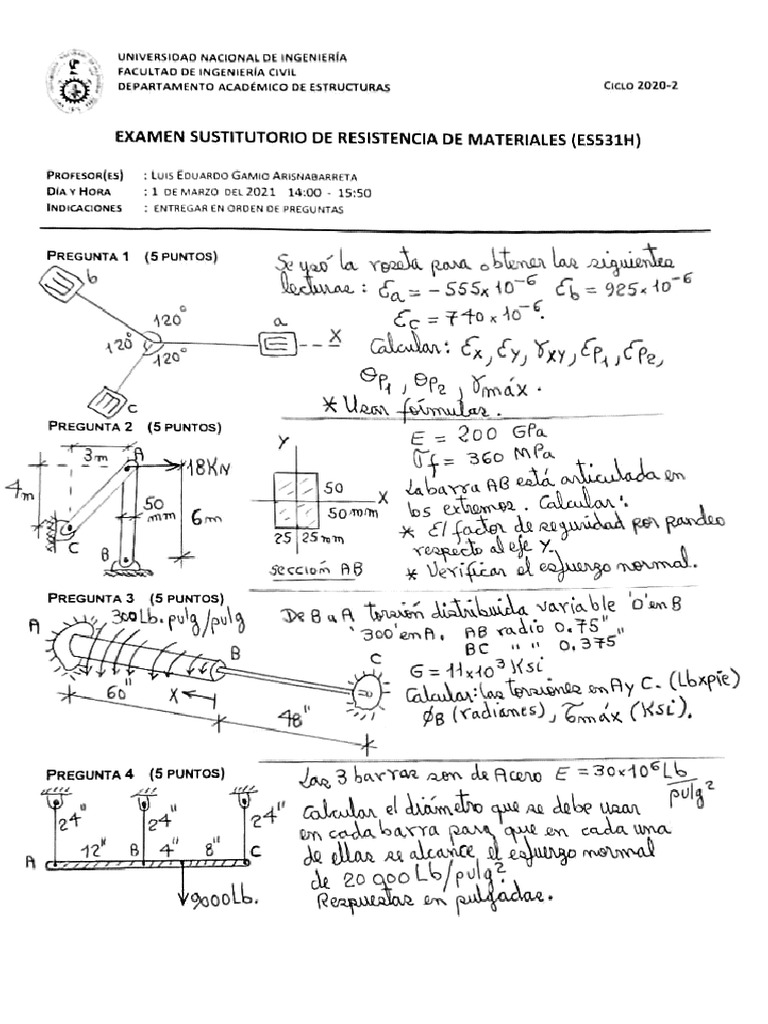 UNIVERSIDAD NACIONAL DE INGENIERÍA
FACULTAD DE INGENIERÍA CIVIL
DEPARTAMENTO ACADÉMICO DE ESTRUCTURAS
CICLO 2020-2
EXAMEN SUSTITUTORIO DE RESISTENCIA DE MATERIALES (ES531H)
PROFESOR(ES) : LUIS EDUARDO GAMIO ARISNABARRETA
DÍA Y HORA : 1 DE MARZO DEL 2021 14:00 - 15:50
INDICACIONES : ENTREGAR EN ORDEN DE PREGUNTAS
PREGUNTA 1 (5 PUNTOS)
Se usó la roseta para obtener las siguientes
lecturas : Ea = -555x10^-6 Eb = 925x10^-6
Ec = 740x10^-6.
Calcular: Ex, Ey, γxy, Ep1, Ep2,
θp1, θp2, γmáx.
* Usar fórmulas.
b
120°
a
120°
120°
X
c
PREGUNTA 2 (5 PUNTOS)
E = 200 GPa
σf = 360 MPa
La barra AB está articulada en
los extremos. Calcular:
* El factor de seguridad por pandeo
respecto al eje Y.
* Verificar el esfuerzo normal.
3m
A
18KN
4m
50
mm
6m
C
B
Y
50
X
50mm
25 25mm
sección AB
PREGUNTA 3 (5 PUNTOS)
De B a A torsión distribuida variable '0' en B
'300' en A. AB radio 0.75"
BC " " 0.375"
G = 11x10³ Ksi
Calcular: las torsiones en A y C. (Lbxpie)
ØB (radianes), τmáx (Ksi).
300Lb.pulg/pulg
A
B
C
60"
X
48"
PREGUNTA 4 (5 PUNTOS)
Las 3 barras son de Acero E = 30x10⁶ Lb/pulg²
Calcular el diámetro que se debe usar
en cada barra para que en cada una
de ellas se alcance el esfuerzo normal
de 20 000 Lb/pulg²
Respuestas en pulgadas.
24" 24" 24"
12" 4" 8"
A B C
9000Lb.